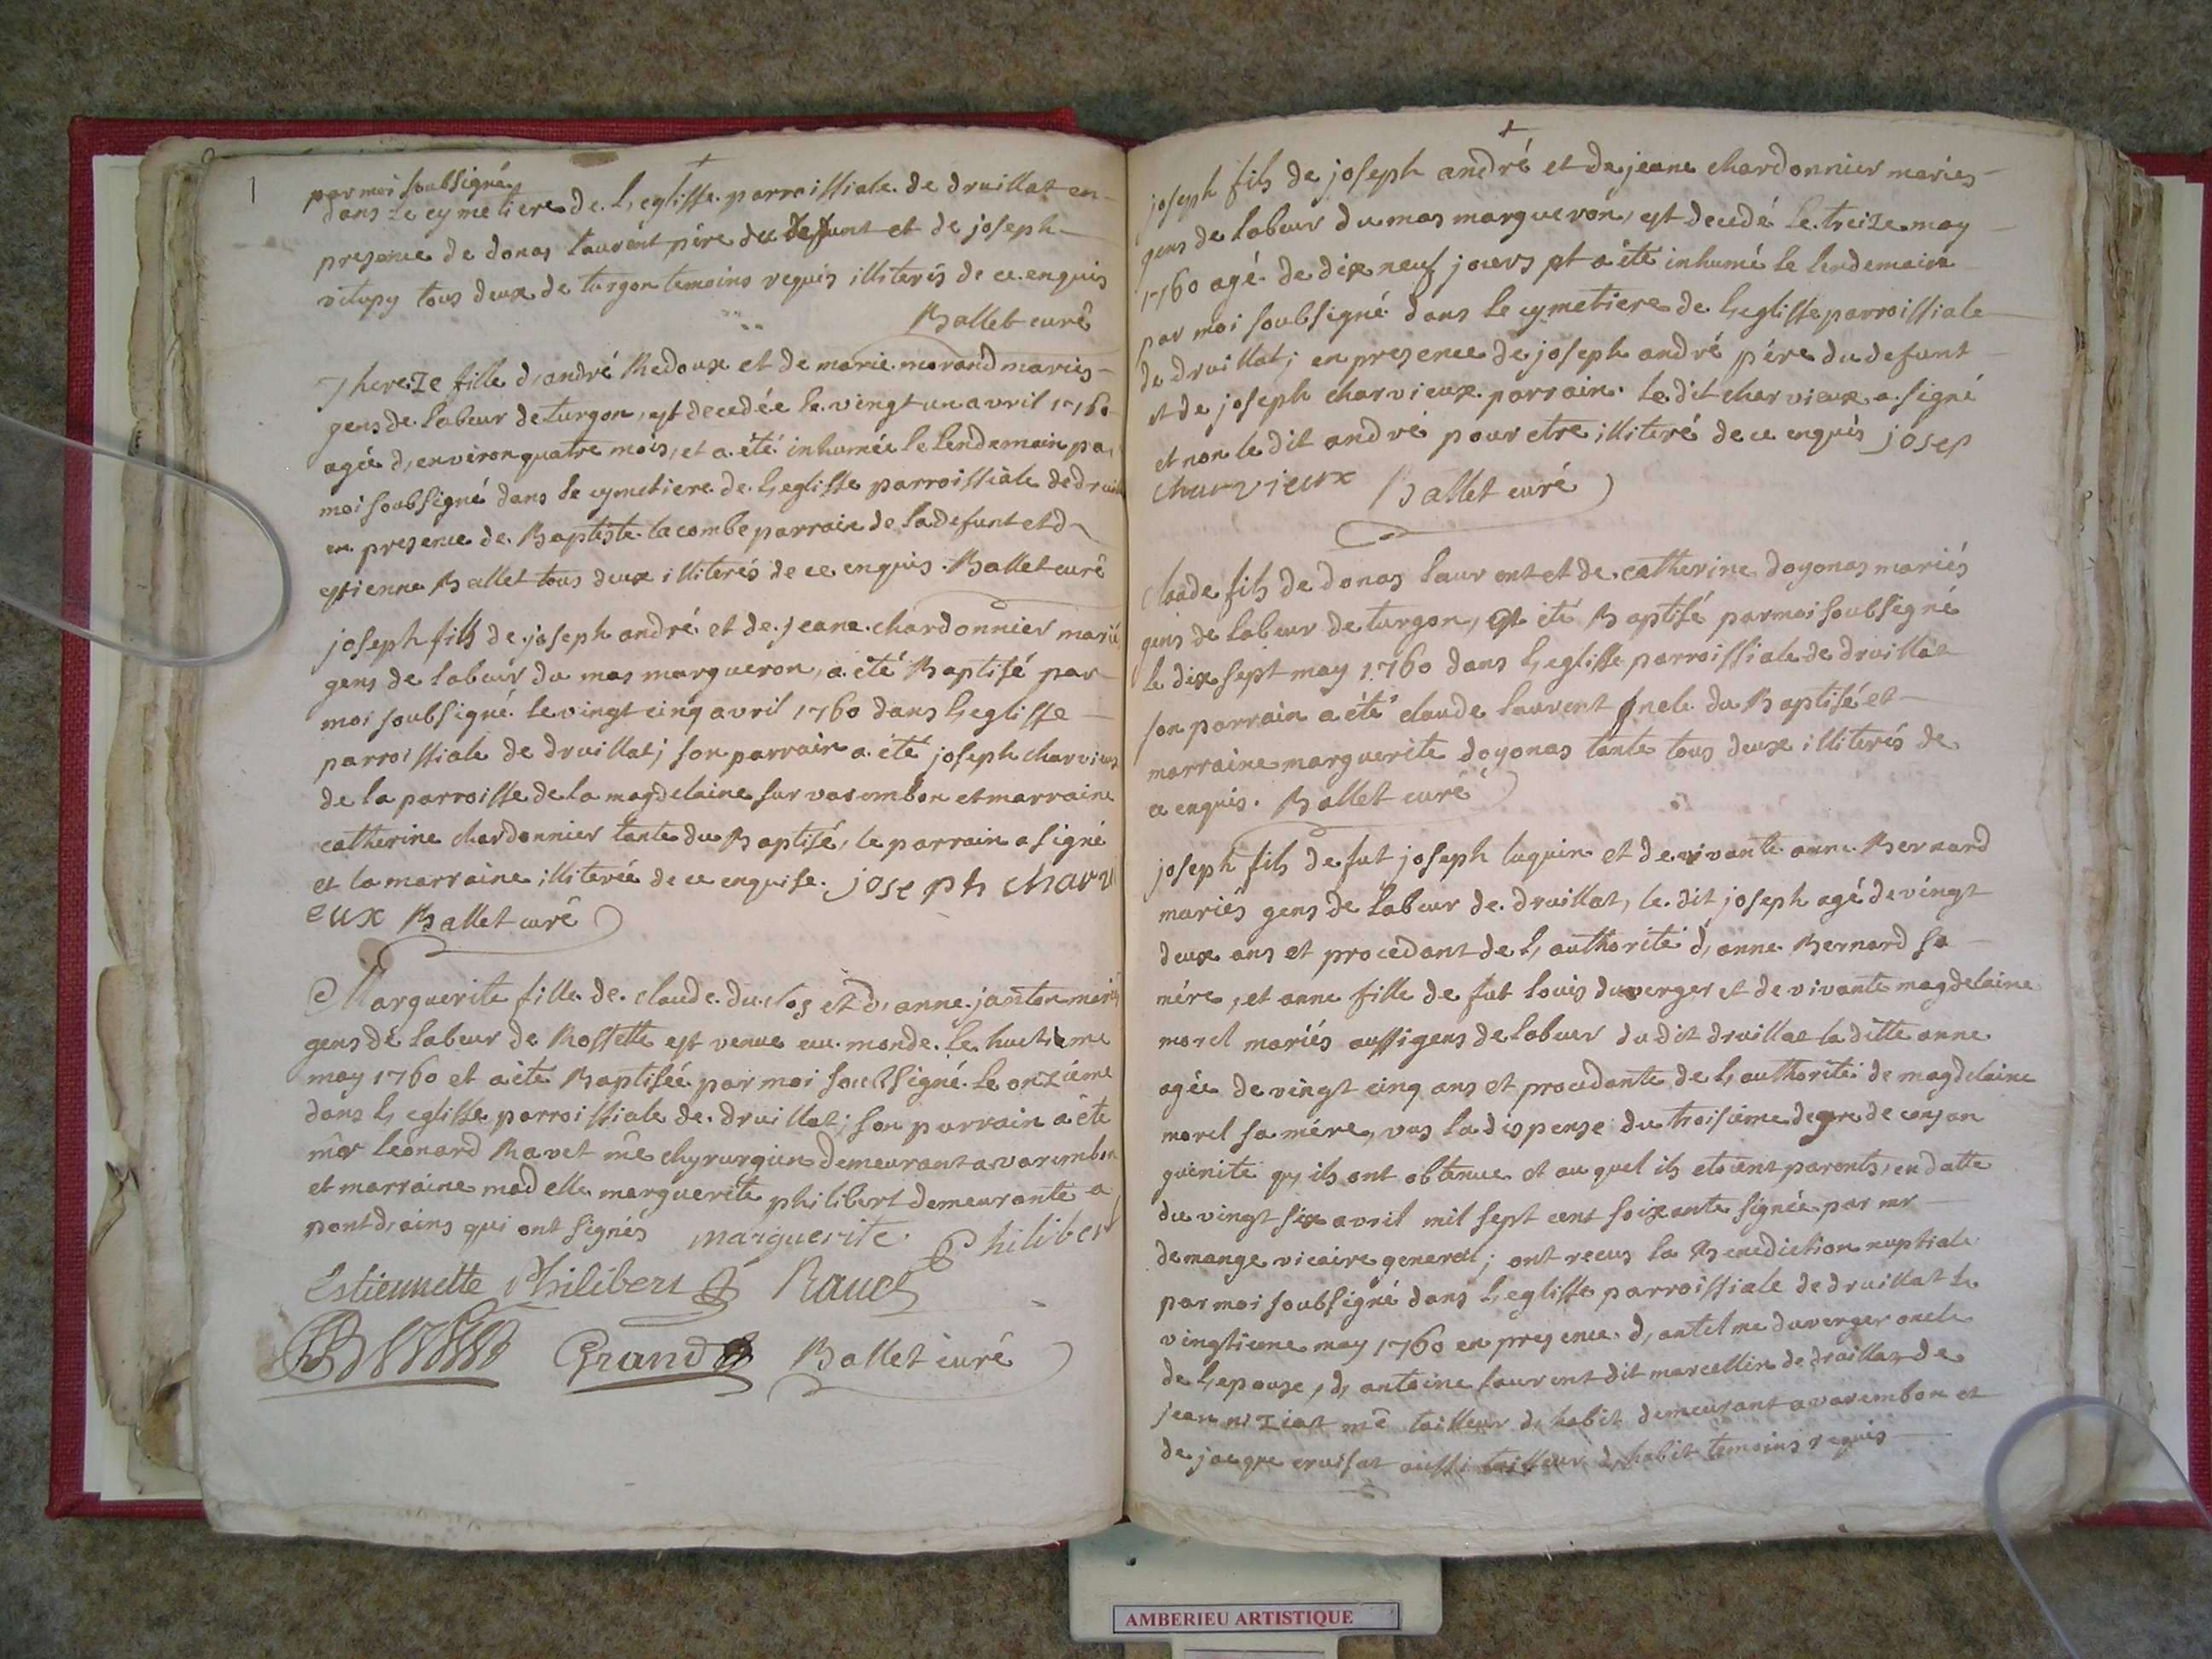 par moi soubsigné
dans le cymetiere de L'eglisse parroissiale de druillat en
presence de donas laurent pére du defunt et de joseph
vitupy tous deux de turgon temoins requis illiterés de ce enquis
Ballet curé
Thereze fille d'andré Redoux et de marie morand mariés
gens de labeur de turgon, est decedée le vingt un avril 1760
agée d'environ quatre mois, et a été inhumée le lendemain pa
moi soubsigné dans le cymetiere de L'eglisse parroissiale de druill
en presence de Baptiste lacombe parrain de la defunt et d
estienne Ballet tous deux illiterés de ce enquis. Ballet curé
joseph fils de joseph andré et de jeane chardonnier marié
gens de labeur du mas margueron, a été Baptisé par
moi soubsigné le vingt cinq avril 1760 dans L'eglisse
parroissiale de druillat; son parrain a été joseph charvieux
de la parroisse de la magdelaine sur varembon et marraine
catherine chardonnier tante du Baptisé, le parrain a signé
et la marraine illiterée de ce enquise. joseph charvi
eux Ballet curé
Marguerite fille de claude duclos et d'anne janton marié
gens de labeur de Rossette est venue au monde le huctieme
may 1760 et a été Baptisée par moi soubsigné le onzieme
dans L'eglisse parroissiale de druillat; son parrain a été
mêr leonard Ravet mê chyrurgien demeurant a varembon
et marraine mad elle marguerite philibert demeurante a
pont d'ains qui ont signés marguerite Philibert
Estiennette Philibert Ravet
Grand Ballet curé
joseph fils de joseph andré et de jeane chardonnier mariés
gens de labeur du mas margueron, est decedé le treize may
1760 agé de dix neuf jours et a été inhumé le lendemain
par moi soubsigné dans le cymetiere de L'eglisse parroissiale
de druillat; en presence de joseph andré pére du defunt
et de joseph charvieux parrain. le dit charvieux a signé
et non le dit andré pour etre illiteré de ce enquis josep
charvieux Ballet curé
Claude fils de donas laurent et de catherine doyonas mariés
gens de labeur de turgon, est été Baptisé par moi soubsigné
le dix sept may 1760 dans L'eglisse parroissiale de druillat
son parrain a été claude laurent oncle du Baptisé et
marraine marguerite doyonas tante tous deux illiterés de
ce enquis. Ballet curé
joseph fils de fut joseph luquin et de vivante anne Bernard
mariés gens de labeur de druillat, le dit joseph agé de vingt
deux ans et procedant de L'authorité d'anne Bernard sa
mére, et anne fille de fut louis duverger et de vivante magdelaine
morel mariés aussi gens de labeur du dit druillat la ditte anne
agée de vingt cinq ans et procedante de L'authorité de magdelaine
morel sa mére, vus la dispense du troisieme degre de consan
guinité qu'ils ont obtenue et au quel ils etoient parents, en datte
du vingt six avril mil sept cent soixante signée par mr
demange vicaire general; ont recus la Benediction nuptiale
par moi soubsigné dans L'eglisse parroissiale de druillat le
vingtieme may 1760 en presence d'antelme duverger oncle
de L'epouse, d'antoine laurent dit marcellin de druillat de
jean niziat mê tailleur d'habit demeurant a varembon et
de jacque cruisat aussi tailleur d'habit temoins requis
AMBERIEU ARTISTIQUE